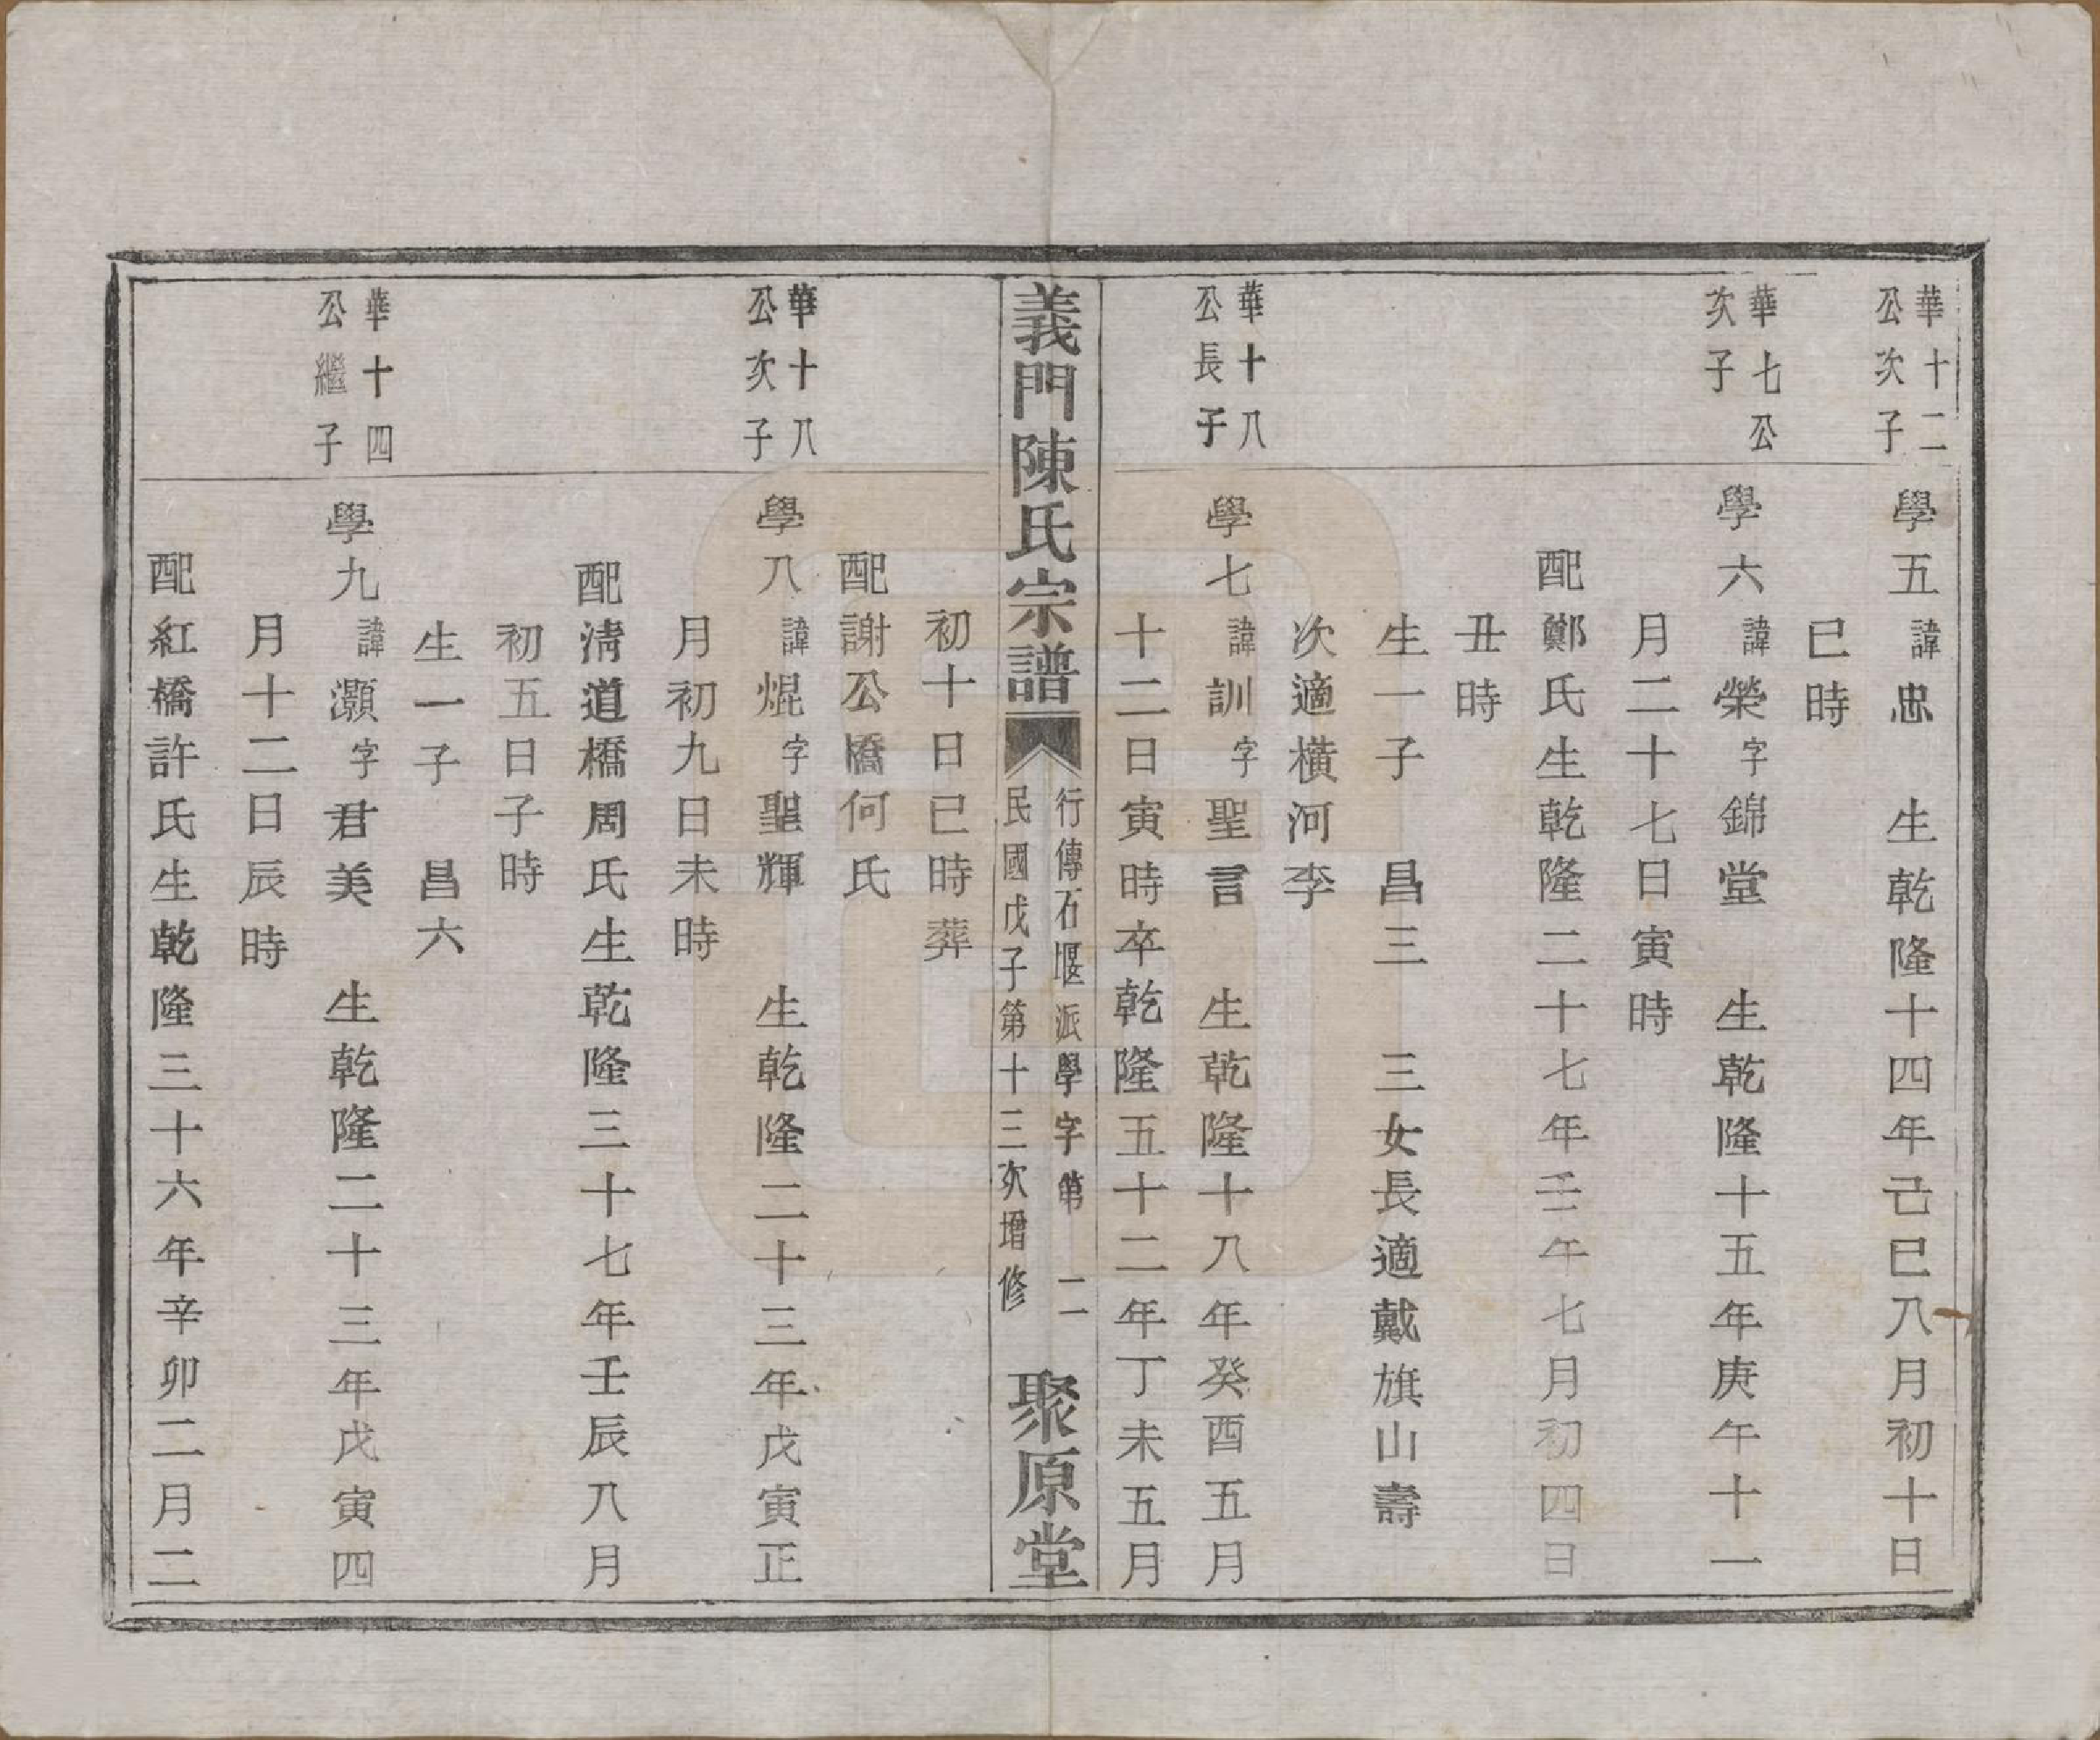 華十二
公次子
學五 諱忠 生乾隆十四年己巳八月初十日
巳時
華七公
次子
學六 諱榮 字錦堂 生乾隆十五年庚午十一
月二十七日寅時
配鄭氏生乾隆二十七年壬午七月初四日
丑時
生一子 昌三 三女長適戴旗山壽
次適橫河李
華十八
公長子
學七 諱訓 字聖言 生乾隆十八年癸酉五月
十二日寅時卒乾隆五十二年丁未五月
義門陳氏宗譜
行傳石堰派學字第 二
民國戊子第十三次增修
聚原堂
初十日巳時葬
配謝公橋何氏
華十八
公次子
學八 諱焜 字聖輝 生乾隆二十三年戊寅正
月初九日未時
配淸道橋周氏生乾隆三十七年壬辰八月
初五日子時
生一子 昌六
華十四
公繼子
學九 諱灝 字君美 生乾隆二十三年戊寅四
月十二日辰時
配紅橋許氏生乾隆三十六年辛卯二月二